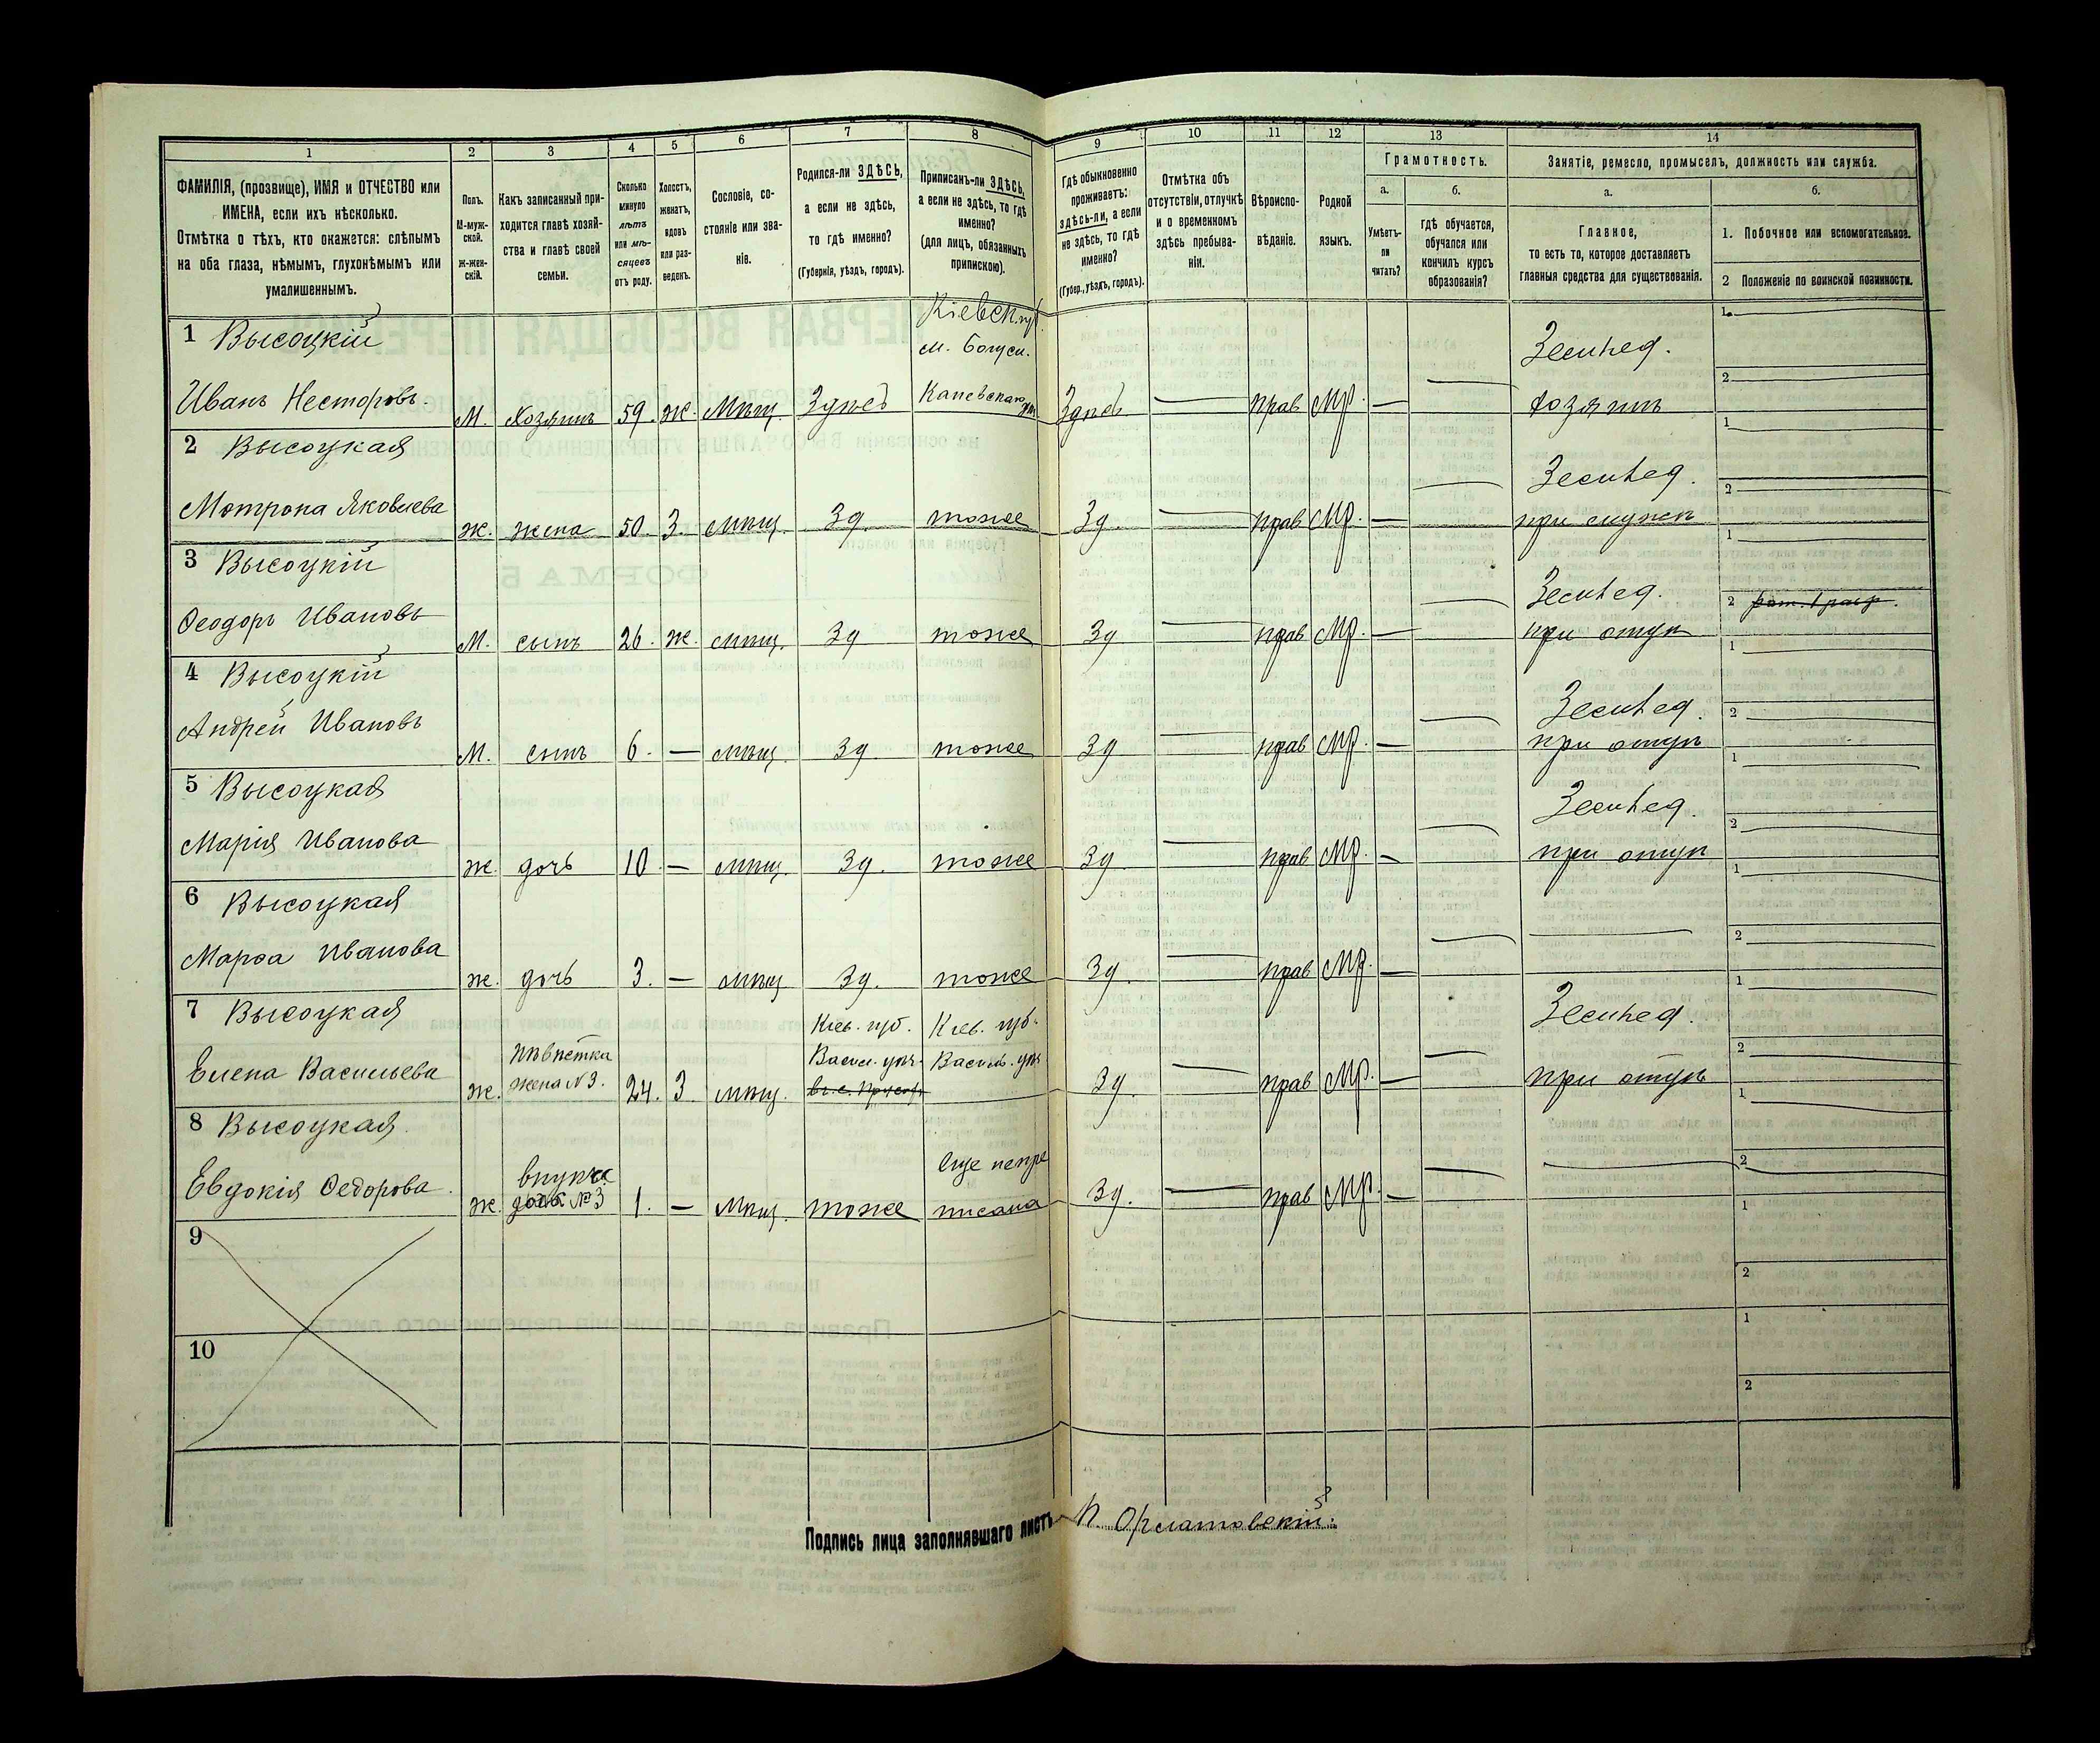 1
2
3
4
5
6
7
8
9
10
11
12
13
14
ФАМИЛІЯ, (прозвище), ИМЯ и ОТЧЕСТВО или
ИМЕНА, если ихъ нѣсколько.
Отмѣтка о тѣхъ, кто окажется: слѣпымъ
на оба глаза, нѣмымъ, глухонѣмымъ или
умалишеннымъ.
Полъ.
М-муж-
ской.
Ж-жен-
скій.
Какъ записанный при-
ходится главѣ хозяй-
ства и главѣ своей
семьи.
Сколько
минуло
лѣтъ
или мѣ-
сяцевъ
отъ роду.
Холостъ,
женатъ,
вдовъ
или раз-
веденъ.
Сословіе, со-
стояніе или зва-
ніе.
Родился-ли ЗДѢСЬ,
а если не здѣсь,
то гдѣ именно?
(Губернія, уѣздъ, городъ).
Приписанъ-ли ЗДѢСЬ,
а если не здѣсь, то гдѣ
именно?
(для лицъ, обязанныхъ
припискою).
Гдѣ обыкновенно
проживаетъ:
здѣсь-ли, а если
не здѣсь, то гдѣ
именно?
(Губер., уѣздъ, городъ).
Отмѣтка объ
отсутствіи, отлучкѣ
и о временномъ
здѣсь пребыва-
ніи.
Вѣроиспо-
вѣданіе.
Родной
языкъ.
Грамотность.
а.
б.
Умѣетъ-
ли
читать?
гдѣ обучается,
обучался или
кончилъ курсъ
образованія?
Занятіе, ремесло, промыселъ, должность или служба.
а.
б.
Главное,
то есть то, которое доставляетъ
главныя средства для существованія.
1. Побочное или вспомогательное.
2 Положеніе по воинской повинности.
1 Высоцкій
Кіевск. губ.
м. Богусл.
Землед.
1.
2
Иванъ Несторовъ. М. Хозяинъ 59. ж. Мѣщ. Здѣсь Каневскаго Здѣсь — прав Мр. — — хозяинъ
2 Высоцкая
Землед.
1
2
Мотрона Яковлева ж. жена 50. З. мѣщ. Зд. тоже Зд — прав Мр. — — при мужѣ
3 Высоцкій
Землед.
1
2 рат. 1 разр.
Ѳеодоръ Ивановъ М. сынъ 26. ж. мѣщ. Зд тоже Зд — прав Мр. — — при отцѣ
4 Высоцкій
Землед.
1
2
Андрей Ивановъ М. сынъ 6. — мѣщ. Зд. тоже Зд — прав Мр. — — при отцѣ
5 Высоцкая
Землед.
1
2
Марія Иванова ж. дочь 10. — мѣщ. Зд. тоже Зд — прав Мр. — — при отцѣ
6 Высоцкая
1
2
Марѳа Иванова ж. дочь 3. — мѣщ Зд. тоже Зд. — прав Мр. — — —
7 Высоцкая
Кіев. губ. Кіев. губ.
Землед.
1
2
невѣстка Васил. уѣз. Василь. уѣз
Елена Васильева ж. жена №3. 24. З мѣщ. въ с. Зд. — прав Мр. — — при отцѣ
8 Высоцкая.
1
2
внучка еще непри
Евдокія Ѳедорова. ж. дочь №3 1. — Мѣщ. тоже писана Зд. — прав Мр. — — —
9
1
2
10
1
2
Подпись лица заполнявшаго листъ П.